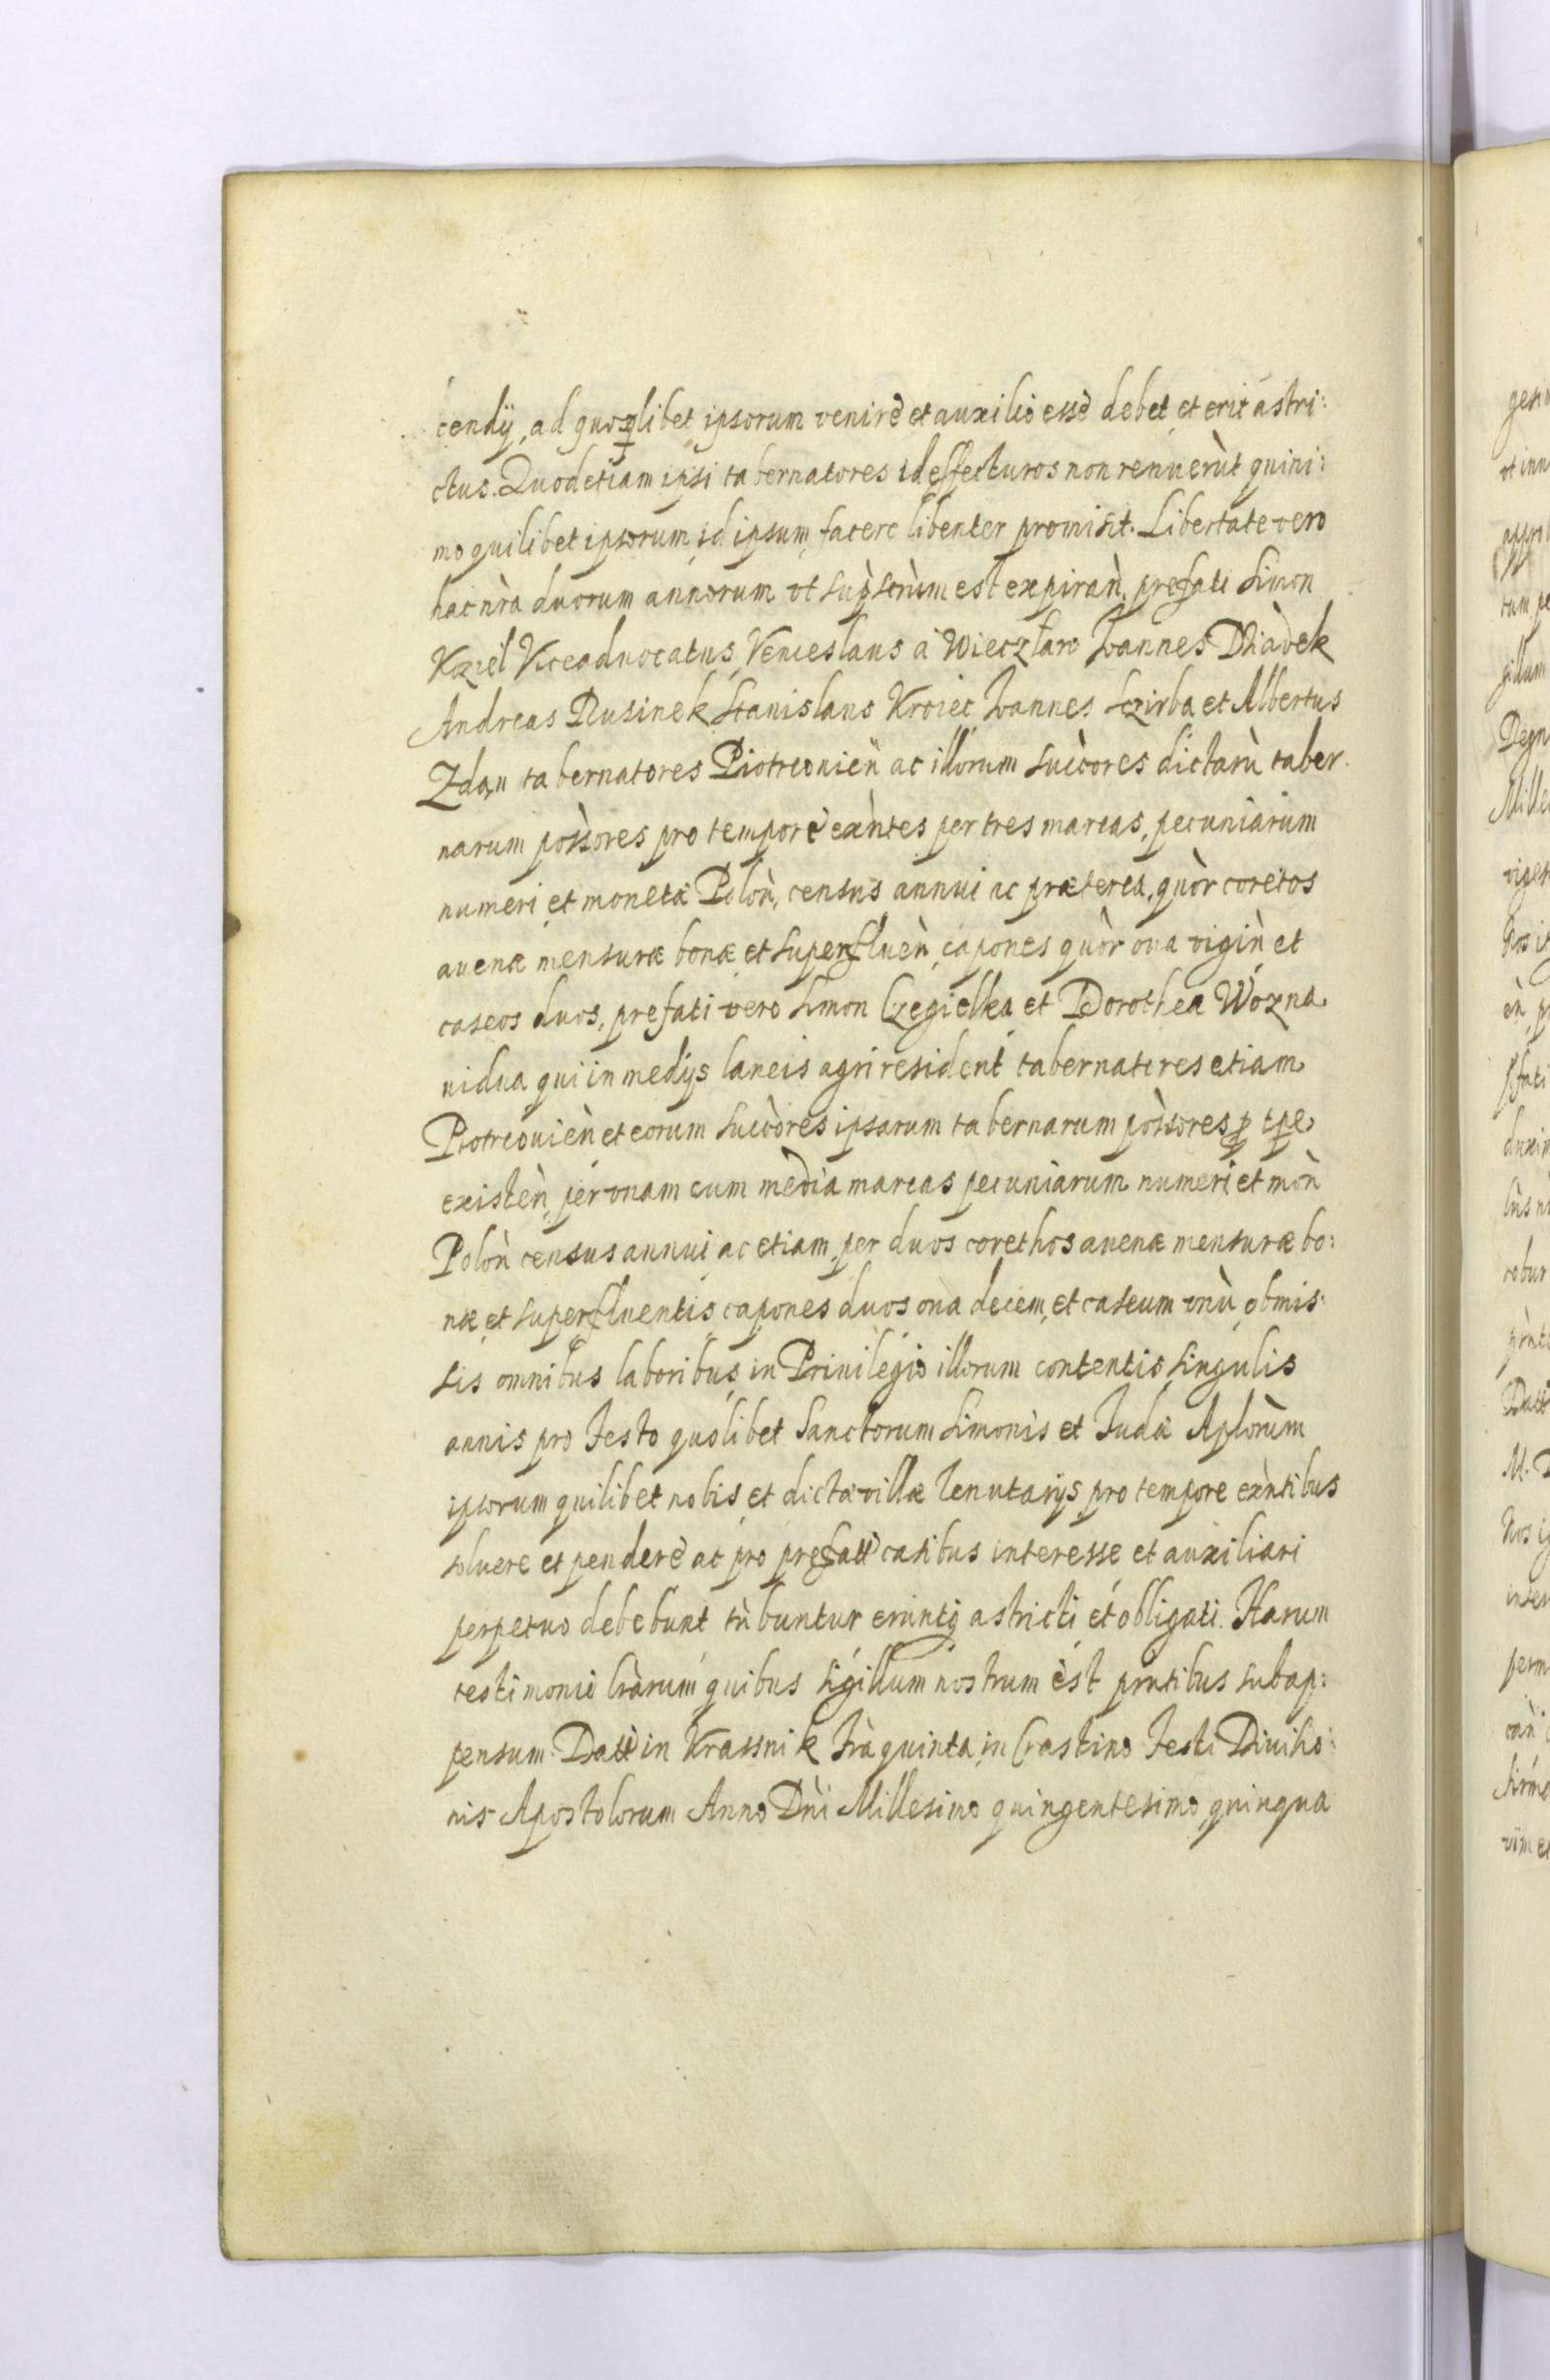 cendÿ, ad quoꝗlibet ipsorum venire et auxilio esse debet et erit astri:
ctus. Quod etiam ipsi tabernatores id effecturos non rennuerùt quini:
mo quilibet ipsorum id ipsum facere libenter promisit. Libertate vero
hac nrà duorum annorum vt supscrùm est expiraǹ, prefati Simon
Kziel Viceadvocatus Venceslaus à Wieczlaw Joannes Dhiadek
Andreas Rusinek Stanislaus Kroiec Joannes Sczirba et Albertus
Zdan tabernatores Piotrconieǹ ac illorum succores dictarù taber.
narum possores pro tempore exǹtes per tres marcas, pecuniarum
numeri et monetæ Poloǹ, census annui ac præterea quòr coretos
auenæ mensuræ bonæ et superfluèn, capones quòr oua vigiǹ et
caseos duos, prefati vero Simon Czegielka et Dorothea Wozna
uidua qui in medÿs laneis agri resident tabernatores etiam
Piotrcouièn et eorum succòres ipsarum tabernarum pòssores ꝓ tpe
existeǹ, per vnam cum media marcas pecuniarum numeri et moǹ
Poloǹ census annui ac etiam per duos corethos auenæ mensuræ bo:
næ et superfluentis capones duos oua decem, et caseum vnù obmis:
sis omnibus laboribus in Priuilegio illorum contentis singulis
annis pro Festo quolibet Sanctorum Simonis et Judæ Aplorùm
ipsorum quilibet nobis et dictæ villæ Tenutarÿs pro tempore exǹtibus
soluere et pendere ac pro prefatt casibus interesse et auxiliari
perpetuo debebunt tǹbuntur eruntq astricti et obligati. Harum
testimonio lràrum quibus sigillum nostrum est prntibus subap:
pensum. Datt in Krassnik frà quinta in Crastino Festi Diuisio:
nis Apostolorum Anno Dǹi Millesimo quingentesimo quinqua